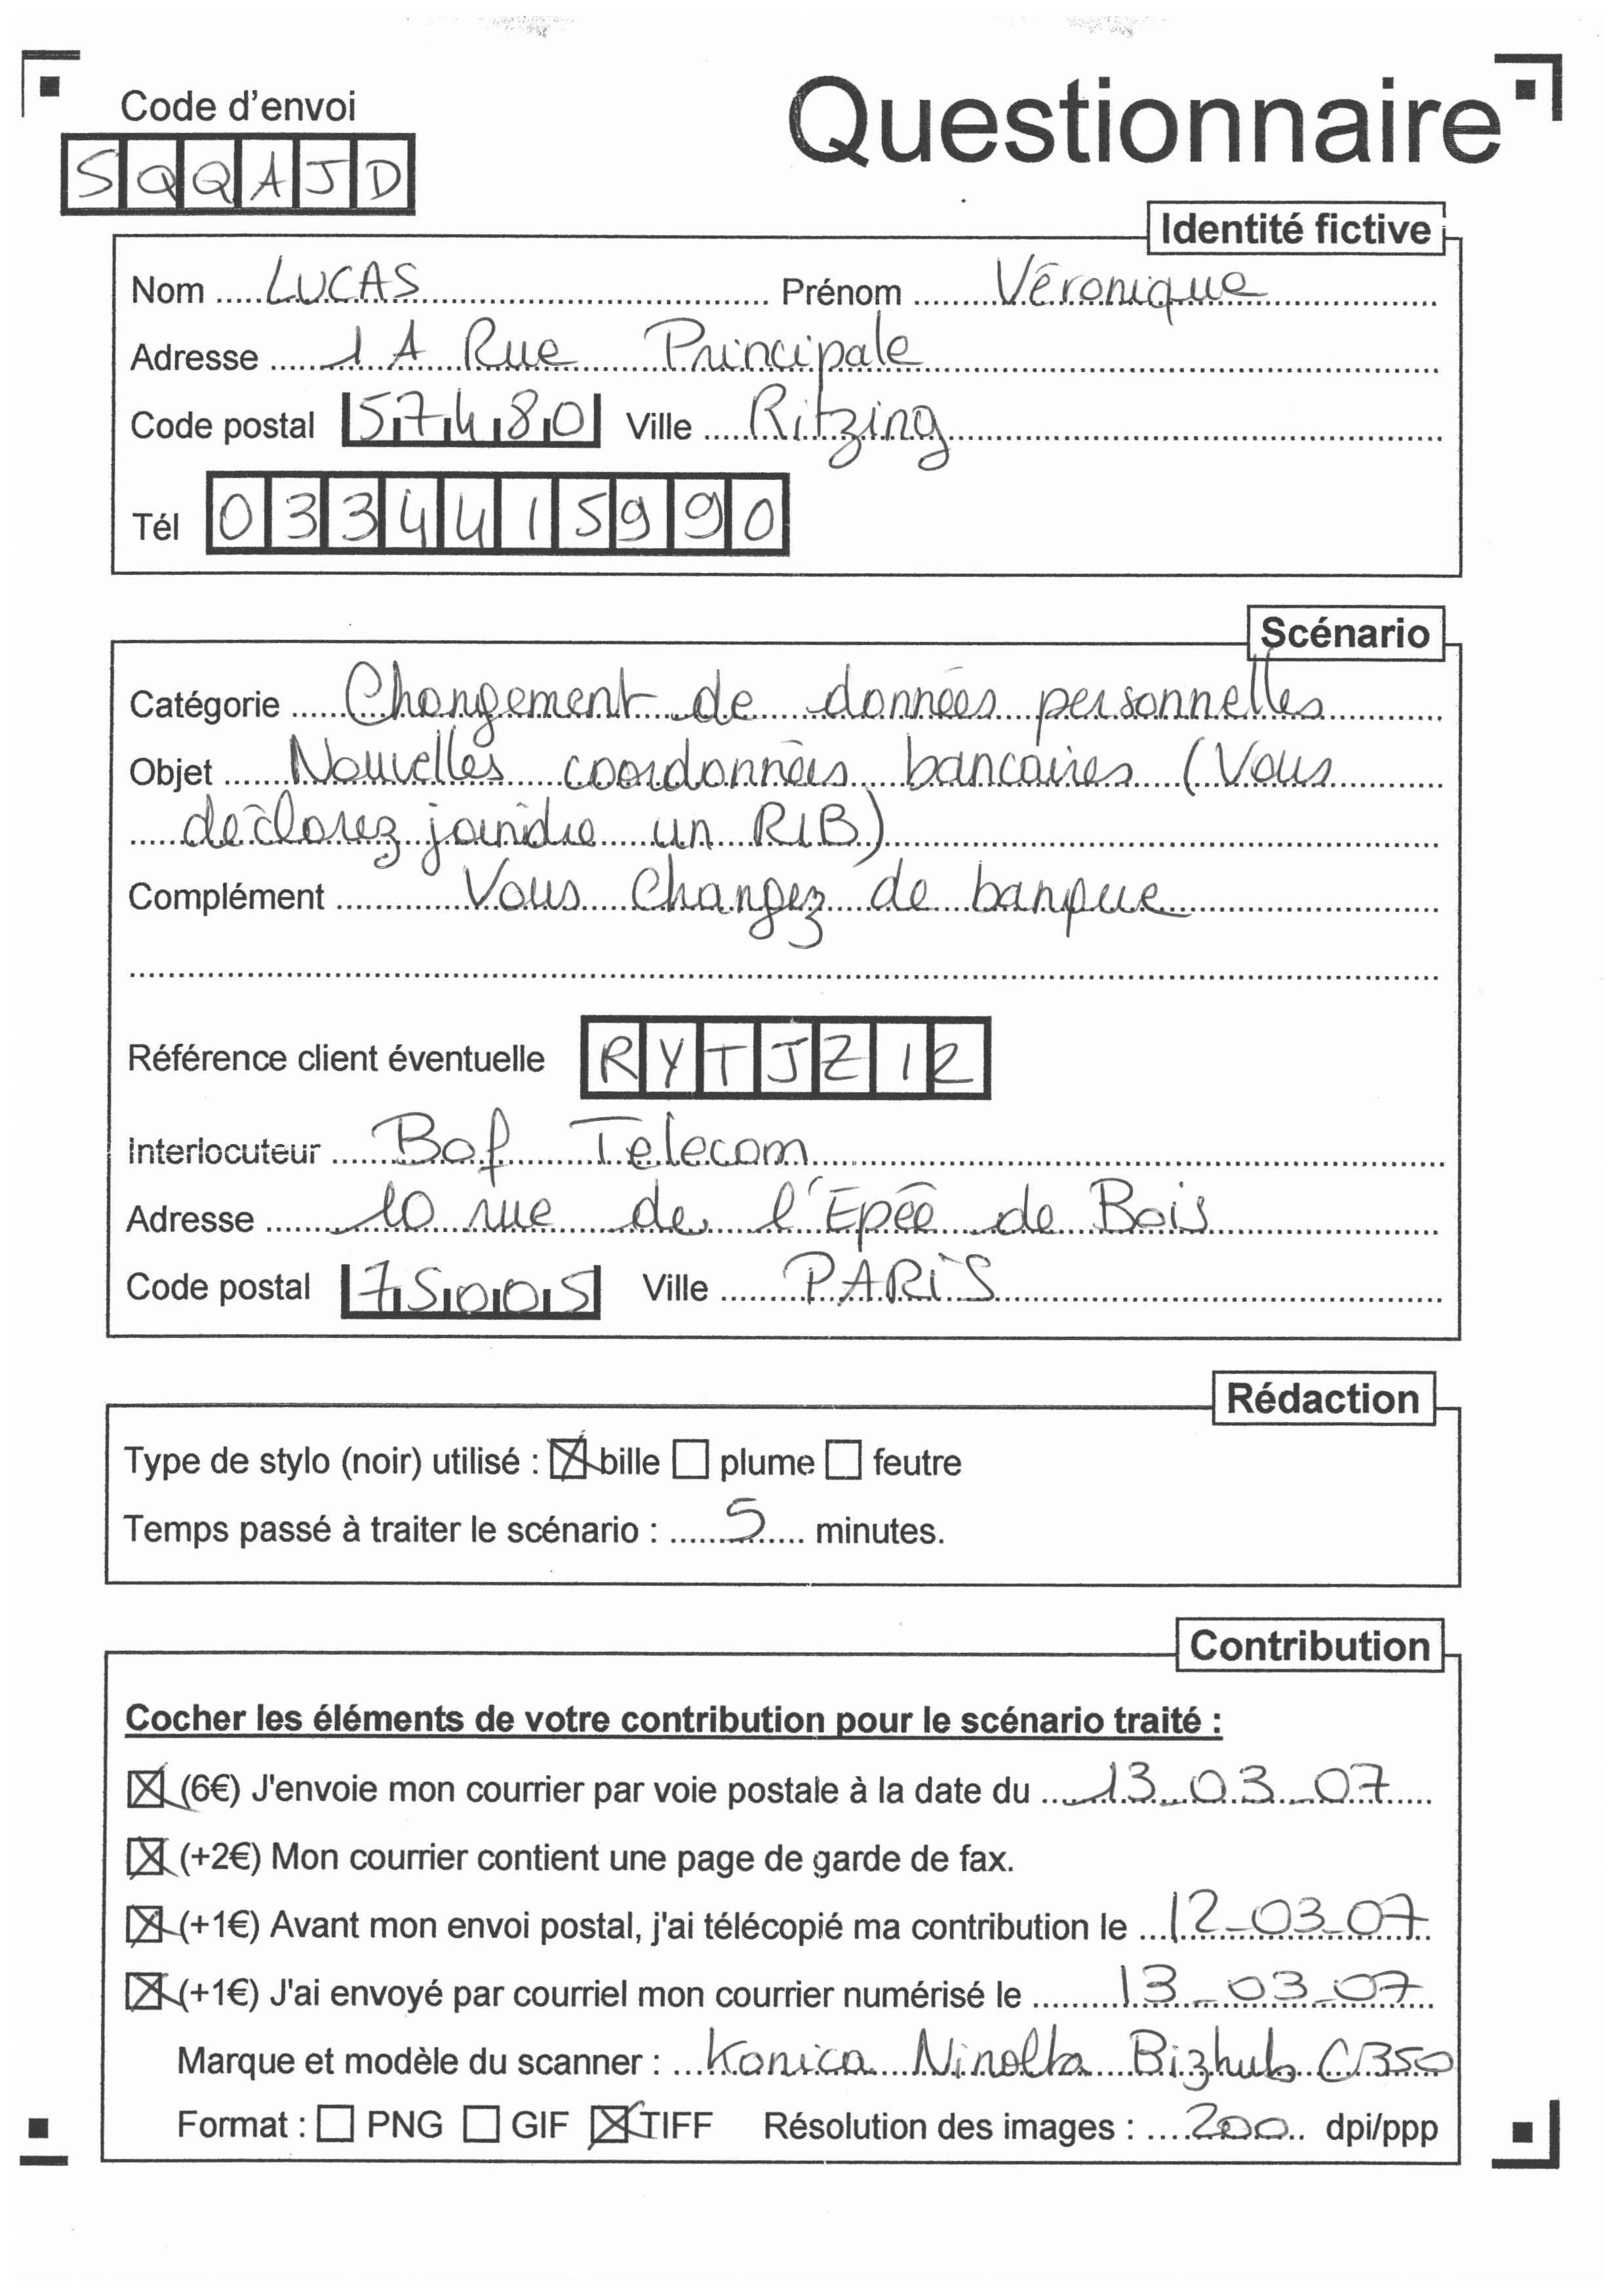 Code d'envoi
Questionnaire
SQQAJD
Identité fictive
Nom LUCAS Prénom Véronique
Adresse 1 A Rue Principale
Code postal 57480 Ville Ritzing
Tél 0334415990
Scénario
Catégorie Changement de données personnelles
Objet Nouvelles coordonnées bancaires (Vous
déclarez joindre un RIB)
Complément Vous changez de banque
Référence client éventuelle RYTJZ12
Interlocuteur Bof Telecom
Adresse 10 rue de l'Epée de Bois
Code postal 75005 Ville PARIS
Rédaction
Type de stylo (noir) utilisé : ☒ bille ☐ plume ☐ feutre
Temps passé à traiter le scénario : 5 minutes.
Contribution
Cocher les éléments de votre contribution pour le scénario traité :
☒ (6€) J'envoie mon courrier par voie postale à la date du 13_03_07
☒ (+2€) Mon courrier contient une page de garde de fax.
☒ (+1€) Avant mon envoi postal, j'ai télécopié ma contribution le 12_03_07
☒ (+1€) J'ai envoyé par courriel mon courrier numérisé le 13_03_07
Marque et modèle du scanner : Konica Ninolta Bizhub C350
Format : ☐ PNG ☐ GIF ☒ TIFF Résolution des images : 200 dpi/ppp